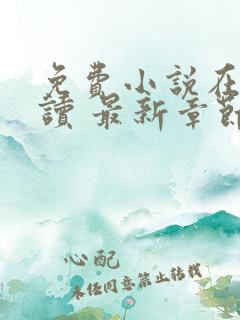 免費小說在
讀 最新章節
心配
未经同意禁止转载